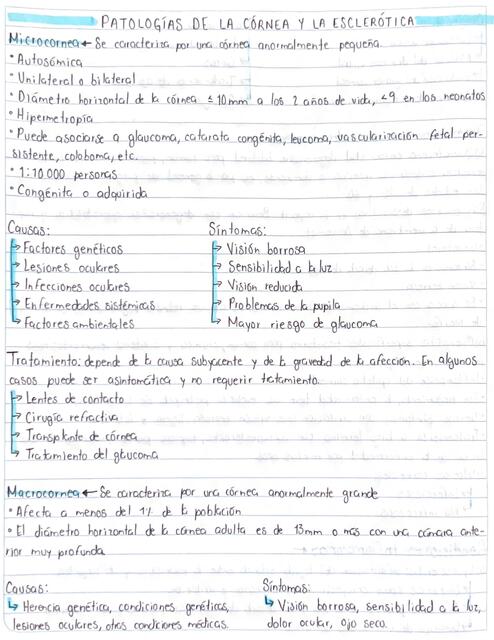 PATOLOGÍAS DE LA CÓRNEA Y LA ESCLERÓTICA
Microcornea ← Se caracteriza por una córnea anormalmente pequeña.
• Autosómica
• Unilateral o bilateral
• Diámetro horizontal de la córnea ≤ 10 mm a los 2 años de vida, <9 en los neonatos
• Hipermetropía
• Puede asociarse a glaucoma, catarata congénita, leucoma, vascularización fetal per-
sistente, coloboma, etc.
• 1:10 000 personas
• Congénita o adquirida
Causas:
→ Factores genéticos
→ Lesiones oculares
→ Infecciones oculares
→ Enfermedades sistémicas
→ Factores ambientales
Síntomas:
→ Visión borrosa
→ Sensibilidad a la luz
→ Visión reducida
→ Problemas de la pupila
→ Mayor riesgo de glaucoma
Tratamiento: depende de la causa subyacente y de la gravedad de la afección. En algunos
casos puede ser asintomática y no requerir tratamiento.
→ Lentes de contacto
→ Cirugía refractiva
→ Transplante de córnea
→ Tratamiento del glaucoma
Macrocornea ← Se caracteriza por una córnea anormalmente grande
• Afecta a menos del 1% de la población
• El diámetro horizontal de la córnea adulta es de 13mm o más con una cámara ante-
rior muy profunda
Causas:
↳ Herencia genética, condiciones genéticas,
lesiones oculares, otras condiciones médicas.
Síntomas:
↳ Visión borrosa, sensibilidad a la luz,
dolor ocular, ojo seco.